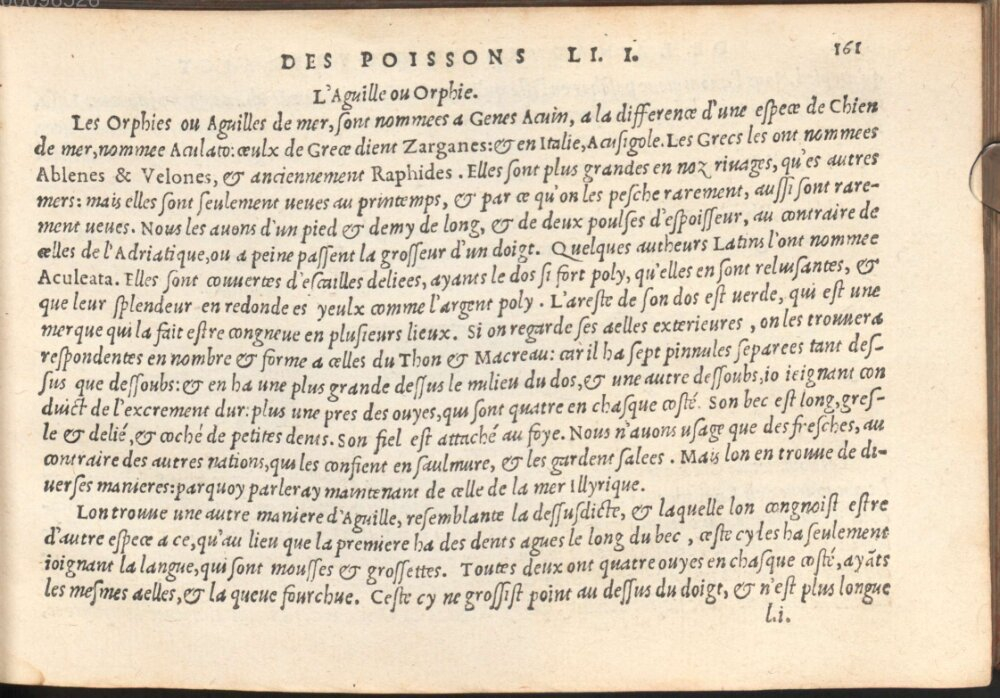 DES POISSONS LI. I. 161
L'Aguille ou Orphie.
Les Orphies ou Aguilles de mer, sont nommees a Genes Acuin, a la difference d'une espece de Chien
de mer, nommee Aculato: ceulx de Grece dient Zarganes: & en Italie, Acusigole. Les Grecs les ont nommees
Ablenes & Velones, & anciennement Raphides. Elles sont plus grandes en noz riuages, qu'es autres
mers: mais elles sont seulement ueues au printemps, & par ce qu'on les pesche rarement, aussi sont rare-
ment ueues. Nous les auons d'un pied & demy de long, & de deux poulses d'espoisseur, au contraire de
celles de l'Adriatique, ou a peine passent la grosseur d'un doigt. Quelques autheurs Latins l'ont nommee
Aculeata. Elles sont couuertes d'escailles deliees, ayants le dos si fort poly, qu'elles en sont reluisantes, &
que leur splendeur en redonde es yeulx comme l'argent poly. L'areste de son dos est uerde, qui est une
merque qui la fait estre congneue en plusieurs lieux. Si on regarde ses aelles exterieures, on les trouuera
respondentes en nombre & forme a celles du Thon & Macreau: car il ha sept pinnules separees tant des-
sus que dessoubs: & en ha une plus grande dessus le milieu du dos, & une autre dessoubs, io ieignant con
duict de l'excrement dur: plus une pres des ouyes, qui sont quatre en chasque costé. Son bec est long, gres-
le & delié, & coché de petites dents. Son fiel est attaché au foye. Nous n'auons usage que des fresches, au
contraire des autres nations, qui les confient en saulmure, & les gardent salees. Mais lon en trouue de di-
uerses manieres: parquoy parleray maintenant de celle de la mer Illyrique.
Lon trouue une autre maniere d'Aguille, resemblante la dessusdicte, & laquelle lon congnoist estre
d'autre espece a ce, qu'au lieu que la premiere ha des dents agues le long du bec, ceste cy les ha seulement
ioignant la langue, qui sont mousses & grossettes. Toutes deux ont quatre ouyes en chasque costé, ayāts
les mesmes aelles, & la queue fourchue. Ceste cy ne grossist point au dessus du doigt, & n'est plus longue
L.i.